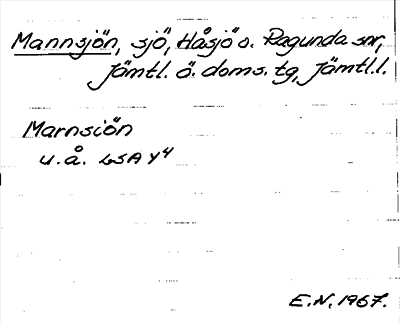 Mannsjön, sjö, Håsjö o. Ragunda snr,
Jämtl. ö. doms. tg, Jämtl.l.
Marnsiön
u.å. LSA Y4
E.N. 1967.